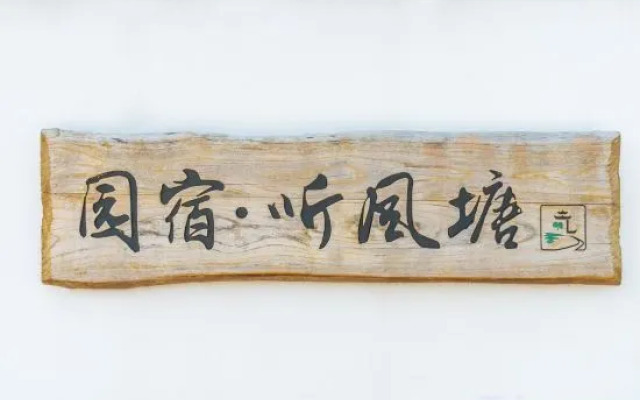 园宿·听风塘